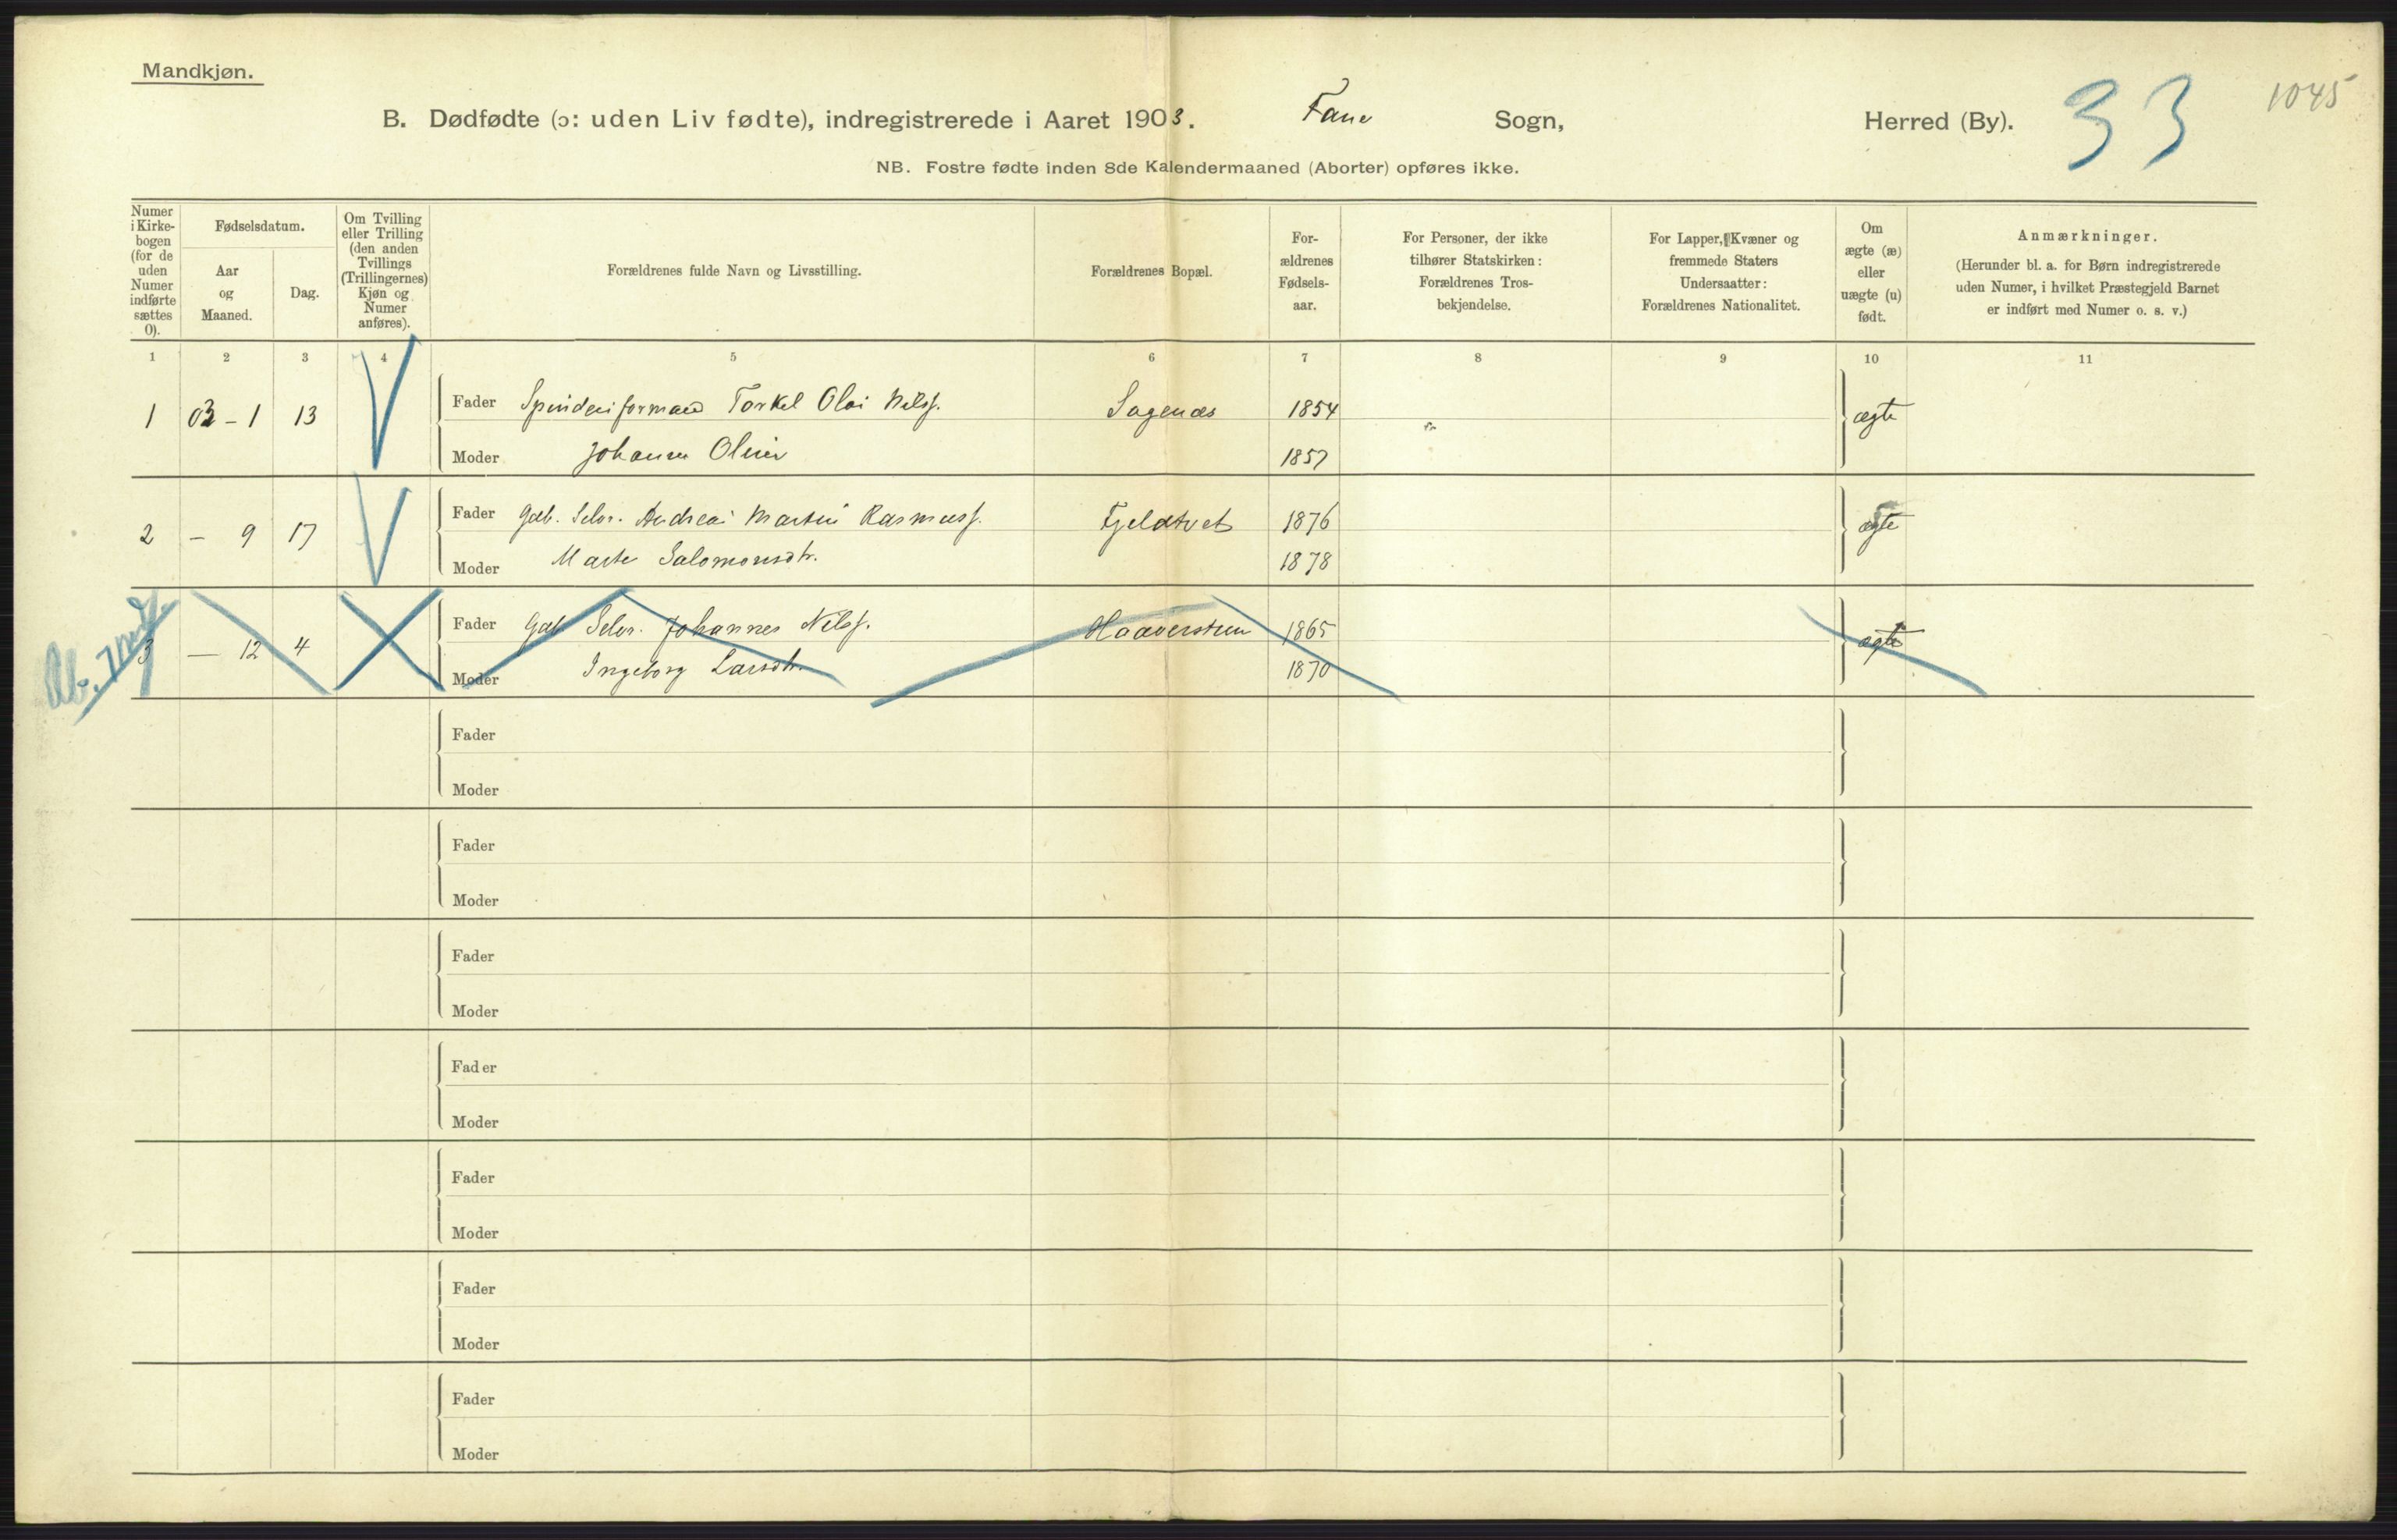 Mandkjøn.
1045
33
B. Dødfødte (ɔ: uden Liv fødte), indregistrerede i Aaret 1903. Fane Sogn, Herred (By).
NB. Fostre fødte inden 8de Kalendermaaned (Aborter) opføres ikke.
Numer i Kirke- bogen (for de uden Numer indførte sættes 0).
Fødselsdatum.
Aar og Maaned.
Dag.
Om Tvilling eller Trilling (den anden Tvillings (Trillingernes) Kjøn og Numer anføres).
Forældrenes fulde Navn og Livsstilling.
Forældrenes Bopæl.
For- ældrenes Fødsels- aar.
For Personer, der ikke tilhører Statskirken: Forældrenes Tros- bekjendelse.
For Lapper, Kvæner og fremmede Staters Undersaatter: Forældrenes Nationalitet.
Om ægte (æ) eller uægte (u) født.
Anmærkninger.
(Herunder bl. a. for Børn indregistrerede uden Numer, i hvilket Præstegjeld Barnet er indført med Numer o. s. v.)
1 2 3 4 5 6 7 8 9 10 11
1 03-1 13 Fader Spinderiformand Torkel Olai Nelsf. Sagenæs 1854 ægte
Moder Johanne Oline 1857
2 - 9 17 Fader Gdb. Selv. Andreas Martin Rasmusf. Fjeldtvet 1876 ægte
Moder Marte Salomonsdtr. 1878
3 - 12 4 Fader Gdb. Selv. Johannes Nilsf. 1865 ægte
Moder Ingeborg Larsdtr. 1870
Fader
Moder
Fader
Moder
Fader
Moder
Fader
Moder
Fader
Moder
Fader
Moder
Fader
Moder